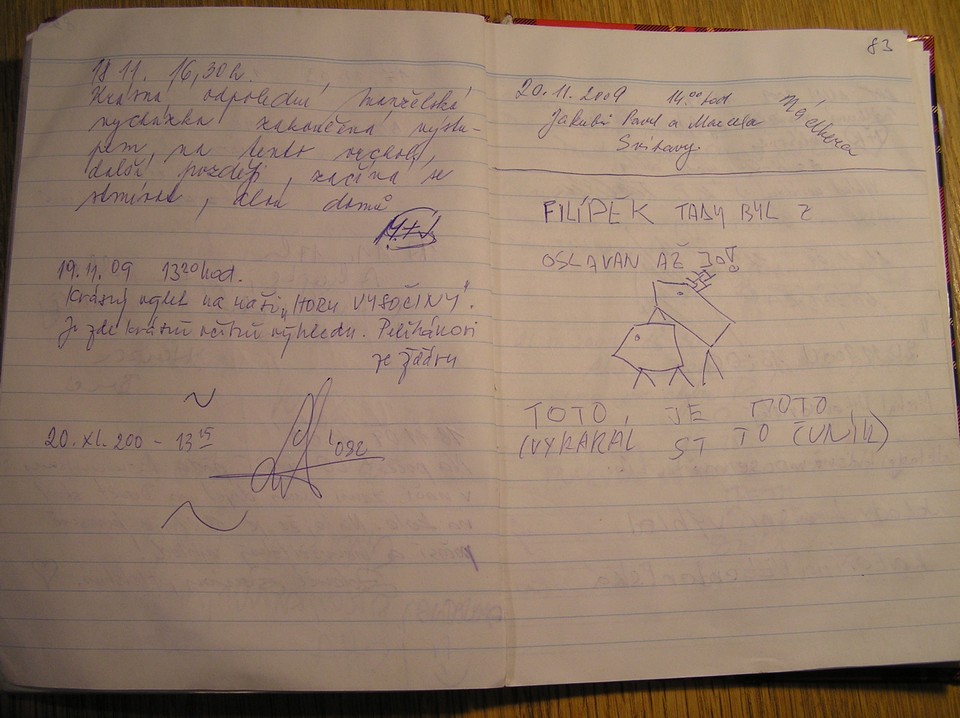 18.11. 16,30 h.
Krásná odpolední manželská
vycházka zakončená výstu-
pem na tento vrchol,
další později, začíná se
stmívat, dom
19.11.09 13 20 hod.
Krásný výlet na naši „HORU VYSOČINY".
Je zde krásně výhledu. Pelikánovi
ze Žďáru
20. XI. 200 - 13 15
83
20.11.2009 14 00 hod.
Jakubi Pavel a Marcela
Svitavy
FILÍPEK TADY BYL Z
OSLAVAN AŽ
TOTO JE MOTO
(VYKAKAL SI TO ČUNÍK)